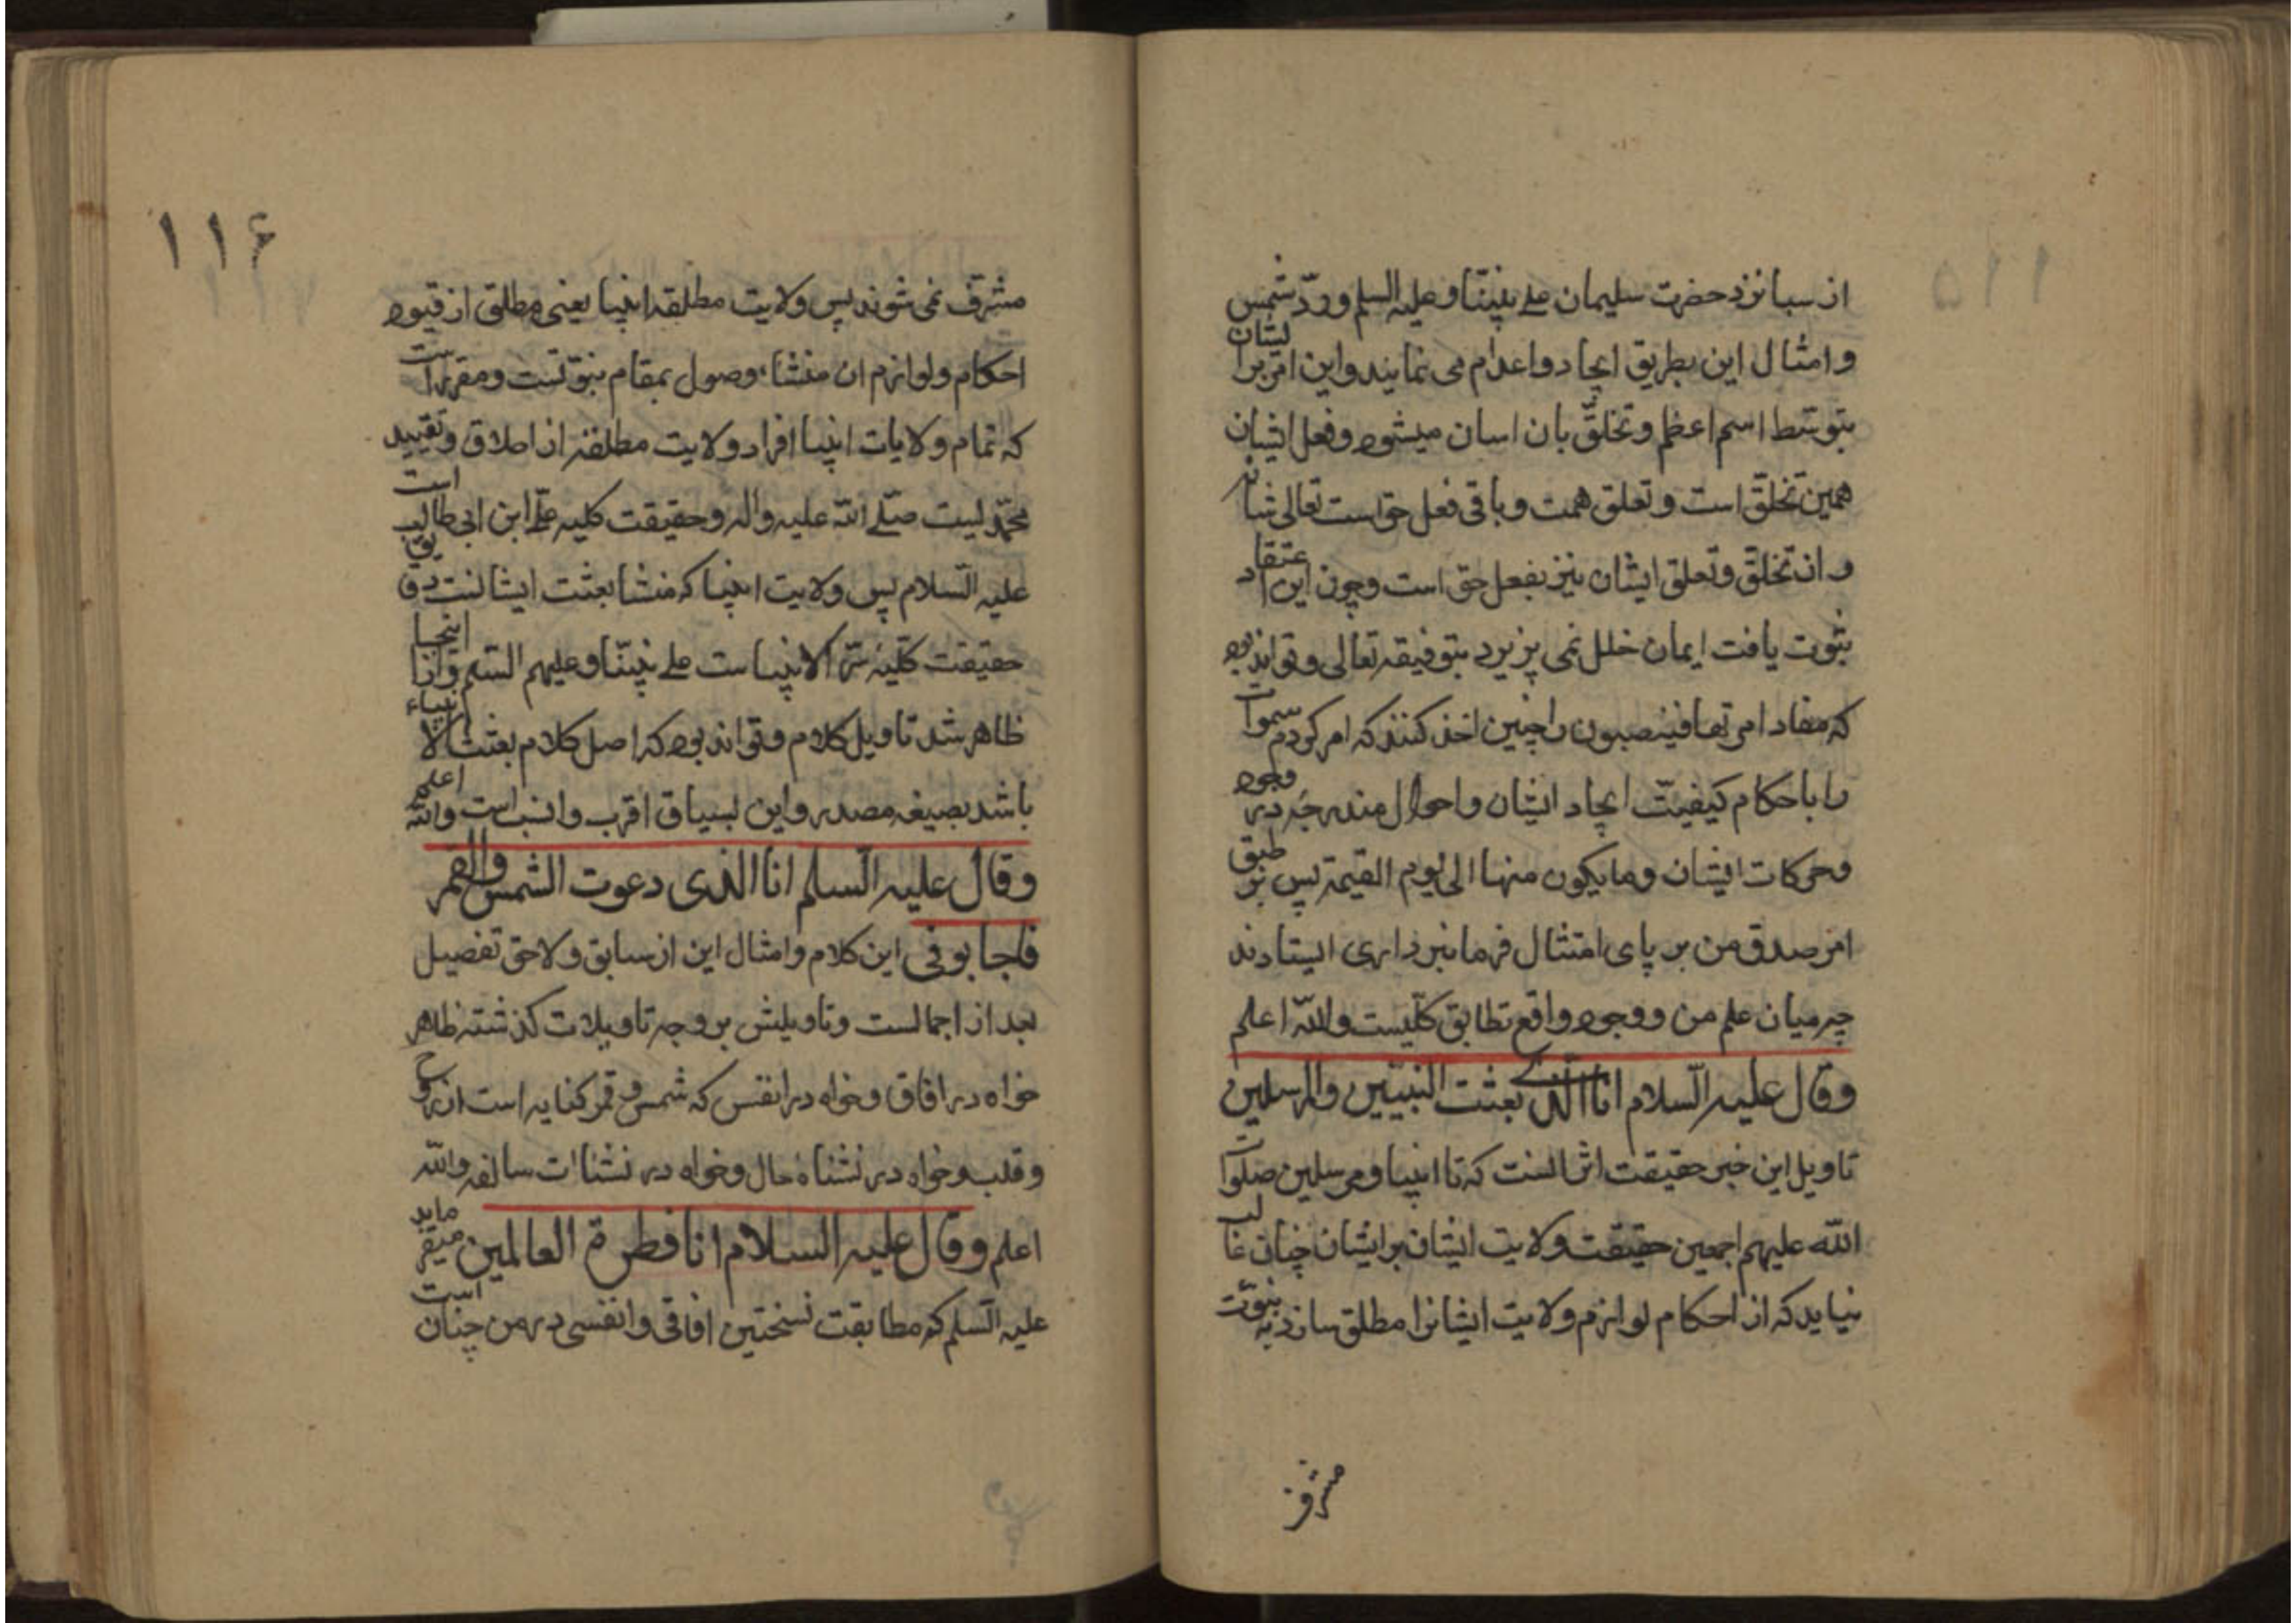 از سبا نزد حضرت سلیمان علی نبینا و علیه السلم و ردّ شمس
و امثال این بطریق ایجاد و اعدام می نمایند و این امر بر ایشان
بتوسّط اسم اعظم و تخلّق بان اسان میشود و فعل ایشان
همین تخلّق است و تعلق همت و باقی فعل حق است تعالی شانه
و ان تخلّق و تعلق ایشان نیز بفعل حق است و چون این اعتقاد
ثبوت یافت ایمان خلل نمی پزیرد بتوفیقه تعالی و تواند بود
که مفاد امر تها فینصبون را چنین اخذ کنند که امر کردم سموات
را باحکام کیفیّت ایجاد ایشان و احوال مندرجه در وجود
و حرکات ایشان و ما یکون منها الی یوم القیمة پس بر طبق
امر صدق من بر پای امتثال فرمانبرداری ایستادند
چه میان علم من و وجود واقع تطابق کلّیست و اللّه اعلم
و قال علیه السّلام انا الذی بعثت النبیّین و المرسلین
تاویل این خبر حقیقت اثر انست که تا انبیا و مرسلین صلوات
اللّه علیهم اجمعین حقیقت ولایت ایشان بر ایشان چنان غالب
نیاید که از احکام لوازم ولایت ایشانرا مطلق سازد به نبوّت
مشرف
۱۱۶
مشرّف نمی شوند پس ولایت مطلقه انبیا یعنی مطلق از قیود
احکام و لوازم ان منشاء وصول بمقام نبوّتست و مقرر است
که تمام ولایات انبیا افراد ولایت مطلقه از اطلاق و تقیید
محمّدیست صلّی اللّه علیه و اله و حقیقت کلیه علیّ ابن ابی طالب است
علیه السّلام پس ولایت انبیا که منشا بعثت ایشانست دقایق
حقیقت کلّیه سرّ الانبیاست علی نبیّنا و علیهم السّلم و از اینجا
ظاهر شد تاویل کلام و تواند بود که اصل کلام بعثت الانبیاء
باشد بصیغه مصدر و این بسیاق اقرب و انسب است و اللّه اعلم
و قال علیه السّلم انا الذی دعوت الشمس و القمر
فاجابونی این کلام و امثال این از سابق و لاحق تفصیل
بعد از اجمالست و تاویلش بر وجه تاویلات کذشته ظاهر
خواه در افاق و خواه در انفس که شمس و قمر کنایه است از روح
و قلب و خواه در نشناه حال و خواه در نشناات سالفه و اللّه
اعلم و قال علیه السلام انا فطرة العالمین میفرماید
علیه السّلم که مطابقت نسختین افاقی و انفسی در من چنان است